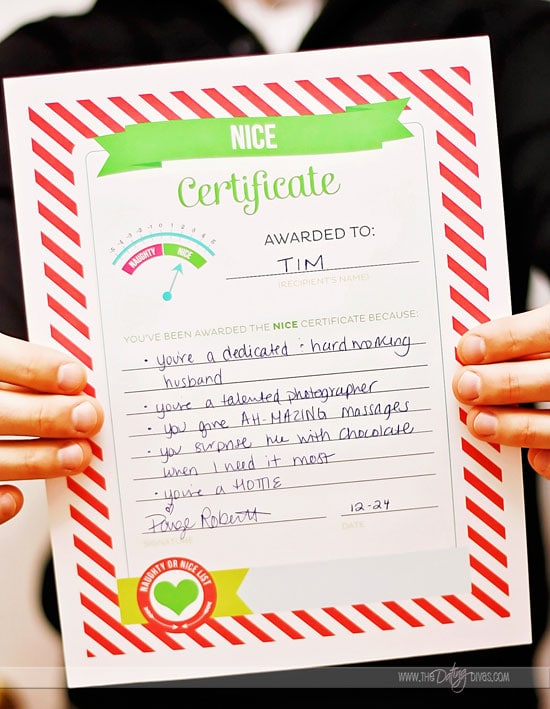 NICE
Certificate
-5 -4 -3 -2 -1 0 1 2 3 4 5
NAUGHTY NICE
AWARDED TO:
TIM
(RECIPIENT'S NAME)
YOU'VE BEEN AWARDED THE NICE CERTIFICATE BECAUSE:
• you're a dedicated & hard working
husband
• you're a talented photographer
• you give AH-MAZING massages
• you surprise me with chocolate
when I need it most
• you're a HOTTIE
Paige Roberts 12-24
SIGNATURE DATE
NAUGHTY OR NICE LIST
WWW.THEDatingDIVAS.COM